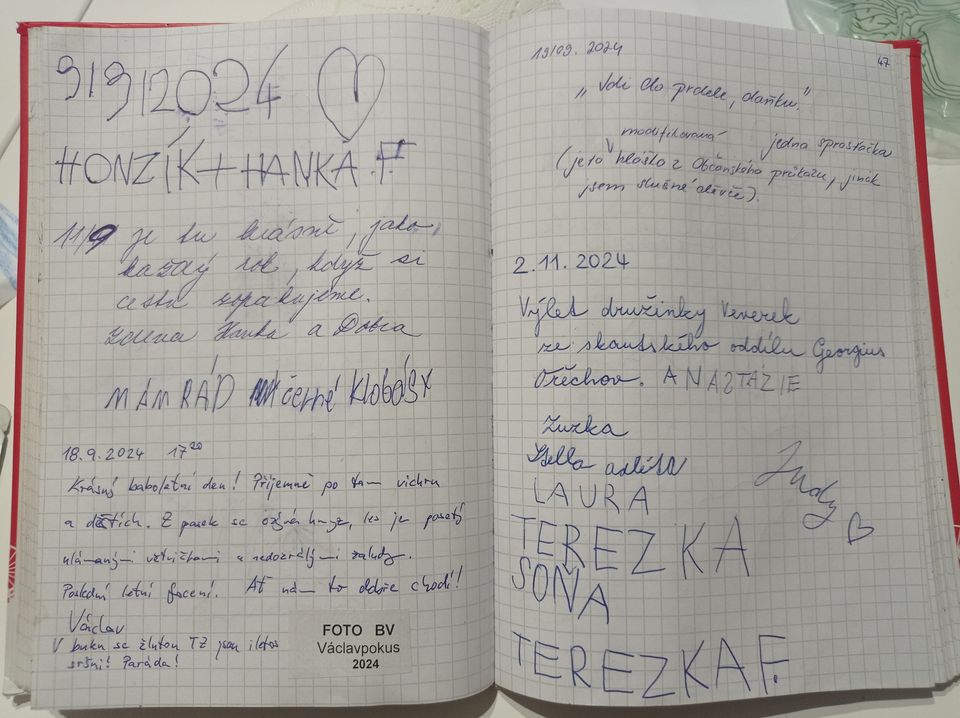 9/9/2024
HONZÍK + HANKA F.
11/9 je tu krásně, jako
každý rok, když si
cestu zopakujeme.
Hanka a
MÁM RÁD černé KlobásY
18.9.2024 17²⁰
Krásný babíletní den! Příjemně po tom vichru
a deštích. Z pasek se ozývá hmyz, les je posetý
ulámanými větvičkami a nedozrálými žaludy.
Poslední letní focení. Ať nám to dobře chodí!
Václav
V buku se žlutou TZ jsou i letos
sršni! Paráda!
FOTO BV
Václavpokus
2024
47
19/09. 2024
„Jdi do prdele, daňku."
modifikovaná jedna sprostačka
(je to hláška z Občanského průkazu, jinak
jsem slušné děvče).
2.11.2024
Výlet družinky Veverek
ze skautského oddílu Georgius
Ořechov. ANAZTÁZIE
Zuzka
Judy
LAURA
TEREZKA
SOŇA
TEREZKA F.